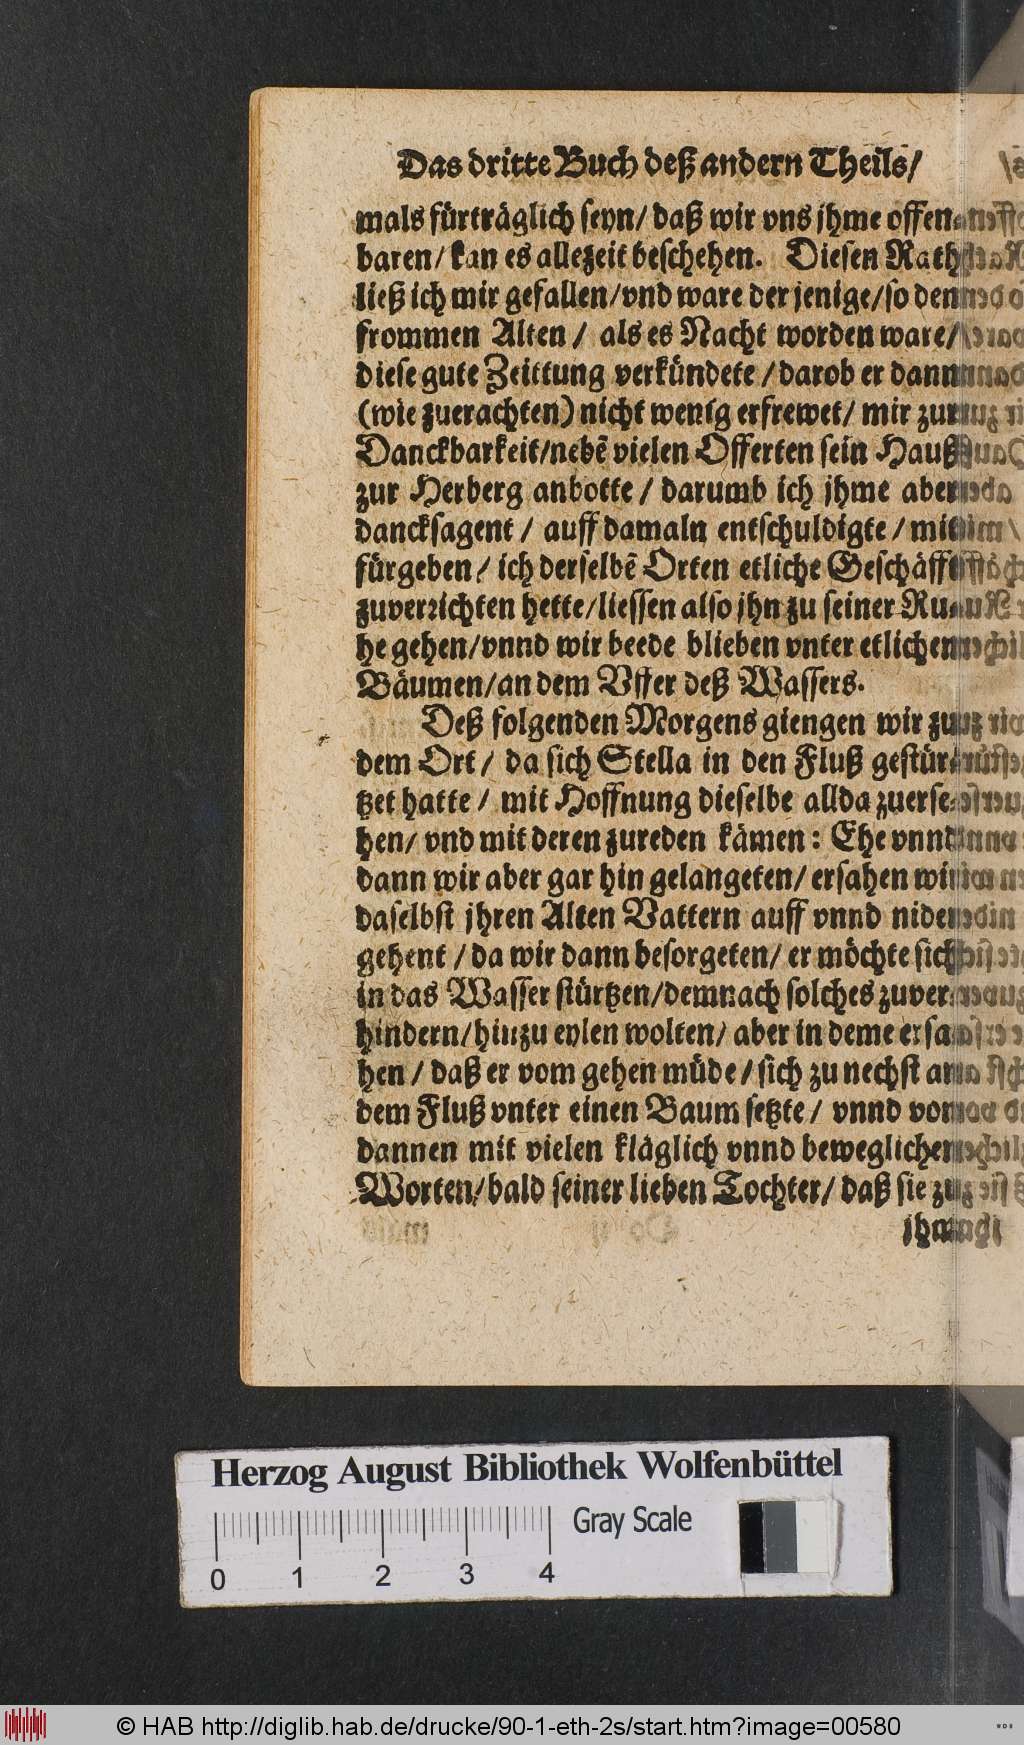 Das dritte Buch deß andern Theils/
mals fürträglich seyn/ daß wir vns jhme offen-
baren/ kan es allezeit beschehen. Diesen Rath
ließ ich mir gefallen/ vnd ware der jenige/ so den
frommen Alten/ als es Nacht worden ware/
diese gute Zeittung verkündete/ darob er dann
(wie zuerachten) nicht wenig erfrewet/ mir zur
Danckbarkeit/ nebẽ vielen Offerten sein Hauß
zur Herberg anbotte/ darumb ich jhme aber
dancksagent/ auff damaln entschuldigte/ mit
fürgeben/ ich derselbẽ Orten etliche Geschäfft
zuverrichten hette/ liessen also jhn zu seiner Ru-
he gehen/ vnnd wir beede blieben vnter etlichen
Bäumen/ an dem Vffer deß Wassers.
Deß folgenden Morgens giengen wir zu
dem Ort/ da sich Stella in den Fluß gestür-
tzet hatte/ mit Hoffnung dieselbe allda zuerse-
hen/ vnd mit deren zureden kämen: Ehe vnnd
dann wir aber gar hin gelangeten/ ersahen wir
daselbst jhren Alten Vattern auff vnnd nider
gehent/ da wir dann besorgeten/ er möchte sich
in das Wasser stürtzen/ demnach solches zuver-
hindern/ hinzu eylen wolten/ aber in deme ersa-
hen/ daß er vom gehen müde/ sich zu nechst an
dem Fluß vnter einen Baum setzte/ vnnd von
dannen mit vielen kläglich vnnd beweglichen
Worten/ bald seiner lieben Tochter/ daß sie zu
jhm
Herzog August Bibliothek Wolfenbüttel
Gray Scale
0 1 2 3 4
© HAB http://diglib.hab.de/drucke/90-1-eth-2s/start.htm?image=00580